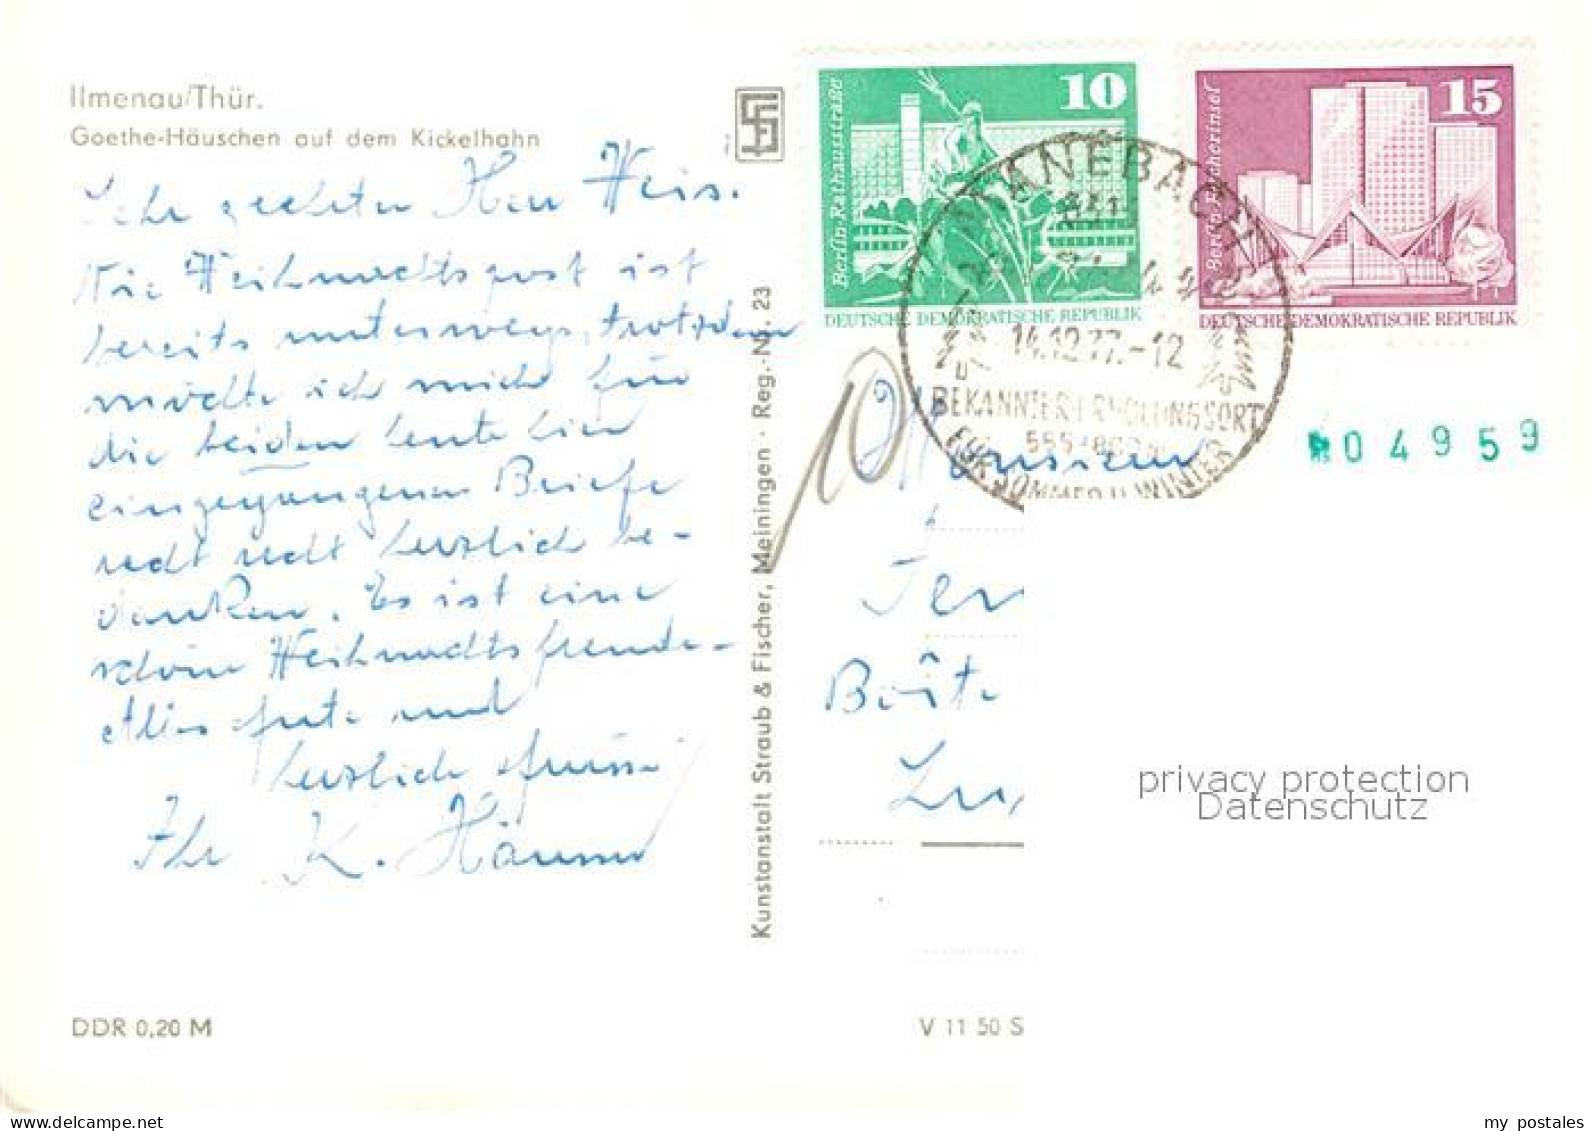 Ilmenau/Thür.
Goethe-Häuschen auf dem Kickelhahn
Sehr geehrter Herr Weis.
Die Weihnachtspost ist
bereits unterwegs, trotzdem
möchte ich mich für
die beiden heute hier
eingegangenen Briefe
recht recht herzlich be-
danken. Es ist eine
schöne Weihnachtsfreude-
Alles Gute und
herzlich
Ihr K.
DDR 0,20 M
Kunstanstalt Straub & Fischer, Meiningen · Reg.-Nr. 23
10
Berlin-Rathausstraße
DEUTSCHE DEMOKRATISCHE REPUBLIK
15
Berlin-Fischerinsel
DEUTSCHE DEMOKRATISCHE REPUBLIK
14.12.77.-12
BEKANNTER ERHOLUNGSORT
FÜR SOMMER U. WINTER
04959
10
Monsieur
V 11 50 S
privacy protection
Datenschutz
my postales